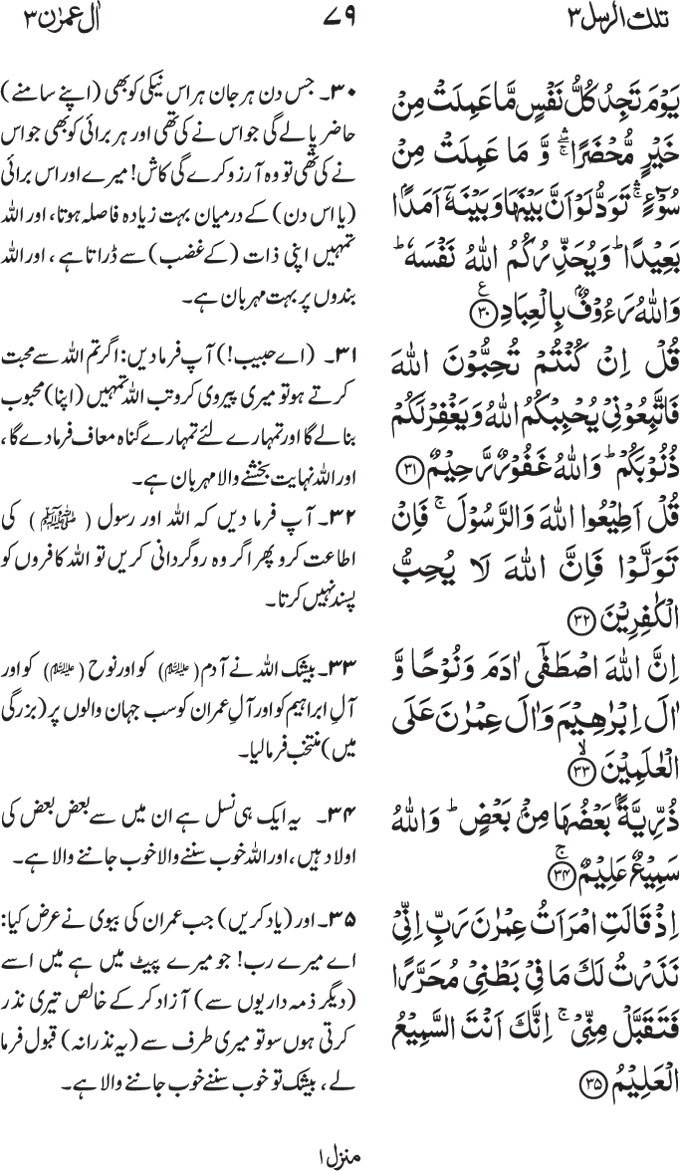 تلک الرسل ۳
۷۹
اٰل عمرٰن ۳
یَوۡمَ تَجِدُ کُلُّ نَفۡسٍ مَّا عَمِلَتۡ مِنۡ
خَیۡرٍ مُّحۡضَرًا ۚۖۛ وَّ مَا عَمِلَتۡ مِنۡ
سُوۡٓءٍ ۚۛ تَوَدُّ لَوۡ اَنَّ بَیۡنَہَا وَ بَیۡنَہٗۤ اَمَدًۢا
بَعِیۡدًا ؕ وَ یُحَذِّرُکُمُ اللّٰہُ نَفۡسَہٗ ؕ
وَ اللّٰہُ رَءُوۡفٌۢ بِالۡعِبَادِ ﴿۳۰﴾ ع
قُلۡ اِنۡ کُنۡتُمۡ تُحِبُّوۡنَ اللّٰہَ
فَاتَّبِعُوۡنِیۡ یُحۡبِبۡکُمُ اللّٰہُ وَ یَغۡفِرۡ لَکُمۡ
ذُنُوۡبَکُمۡ ؕ وَ اللّٰہُ غَفُوۡرٌ رَّحِیۡمٌ ﴿۳۱﴾
قُلۡ اَطِیۡعُوا اللّٰہَ وَ الرَّسُوۡلَ ۚ فَاِنۡ
تَوَلَّوۡا فَاِنَّ اللّٰہَ لَا یُحِبُّ
الۡکٰفِرِیۡنَ ﴿۳۲﴾
اِنَّ اللّٰہَ اصۡطَفٰۤی اٰدَمَ وَ نُوۡحًا وَّ
اٰلَ اِبۡرٰہِیۡمَ وَ اٰلَ عِمۡرٰنَ عَلَی
الۡعٰلَمِیۡنَ ﴿ۙ۳۳﴾
ذُرِّیَّۃًۢ بَعۡضُہَا مِنۡۢ بَعۡضٍ ؕ وَ اللّٰہُ
سَمِیۡعٌ عَلِیۡمٌ ﴿ۚ۳۴﴾
اِذۡ قَالَتِ امۡرَاَتُ عِمۡرٰنَ رَبِّ اِنِّیۡ
نَذَرۡتُ لَکَ مَا فِیۡ بَطۡنِیۡ مُحَرَّرًا
فَتَقَبَّلۡ مِنِّیۡ ۚ اِنَّکَ اَنۡتَ السَّمِیۡعُ
الۡعَلِیۡمُ ﴿۳۵﴾
۳۰۔ جس دن ہر جان ہر اس نیکی کو بھی (اپنے سامنے)
حاضر پا لے گی جو اس نے کی تھی اور ہر برائی کو بھی جو اس
نے کی تھی تو وہ آرزو کرے گی کاش! میرے اور اس برائی
(یا اس دن) کے درمیان بہت زیادہ فاصلہ ہوتا، اور اللہ
تمہیں اپنی ذات (کے غضب) سے ڈراتا ہے، اور اللہ
بندوں پر بہت مہربان ہے۔
۳۱۔ (اے حبیب!) آپ فرما دیں: اگر تم اللہ سے محبت
کرتے ہو تو میری پیروی کرو تب اللہ تمہیں (اپنا) محبوب
بنا لے گا اور تمہارے لئے تمہارے گناہ معاف فرما دے گا،
اور اللہ نہایت بخشنے والا مہربان ہے۔
۳۲۔ آپ فرما دیں کہ اللہ اور رسول (ﷺ) کی
اطاعت کرو پھر اگر وہ روگردانی کریں تو اللہ کافروں کو
پسند نہیں کرتا۔
۳۳۔ بیشک اللہ نے آدم (علیہ السلام) کو اور نوح (علیہ السلام) کو اور
آلِ ابراہیم کو اور آلِ عمران کو سب جہان والوں پر (بزرگی
میں) منتخب فرما لیا۔
۳۴۔ یہ ایک ہی نسل ہے ان میں سے بعض بعض کی
اولاد ہیں، اور اللہ خوب سننے والا خوب جاننے والا ہے۔
۳۵۔ اور (یاد کریں) جب عمران کی بیوی نے عرض کیا:
اے میرے رب! جو میرے پیٹ میں ہے میں اسے
(دیگر ذمہ داریوں سے) آزاد کر کے خالص تیری نذر
کرتی ہوں سو تو میری طرف سے (یہ نذرانہ) قبول فرما
لے، بیشک تو خوب سننے خوب جاننے والا ہے۔
منزل ۱